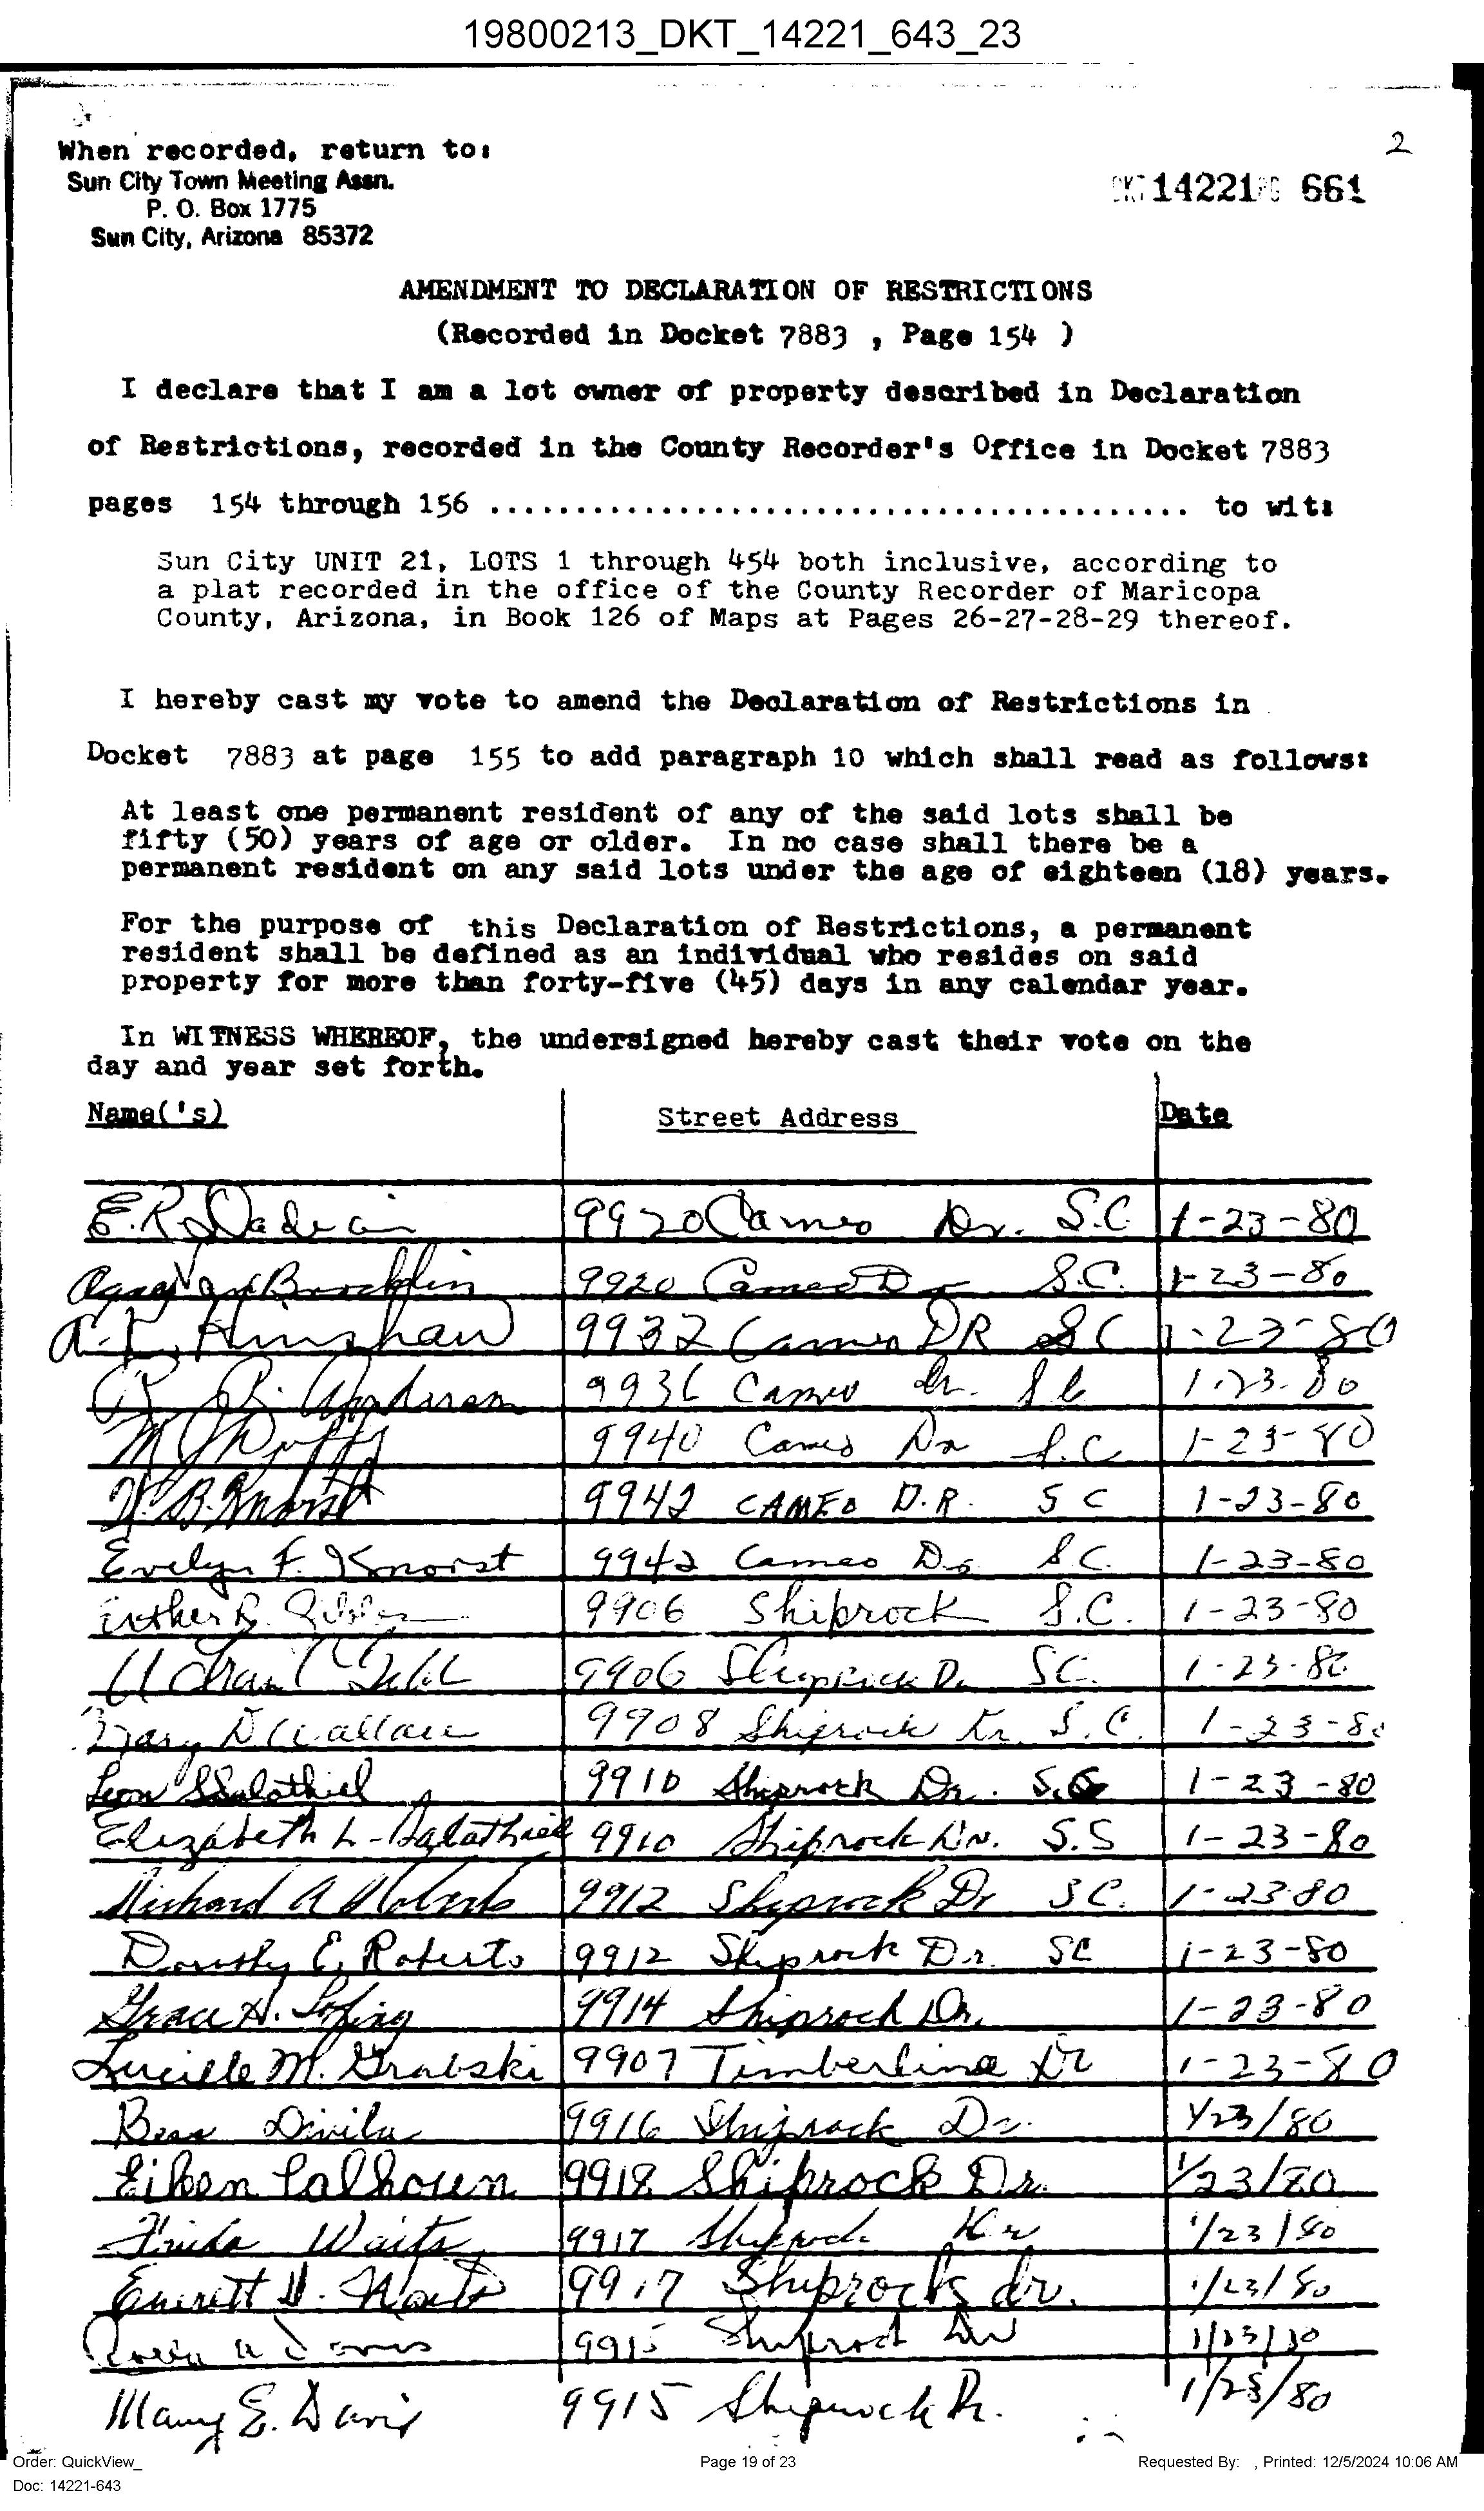 19800213_DKT_14221_643_23
2
When recorded, return to:
Sun City Town Meeting Assn.
P. O. Box 1775
Sun City, Arizona 85372
DKT 14221 PG 661
AMENDMENT TO DECLARATION OF RESTRICTIONS
(Recorded in Docket 7883 , Page 154 )
I declare that I am a lot owner of property described in Declaration
of Restrictions, recorded in the County Recorder's Office in Docket 7883
pages 154 through 156 ......................................... to wit:
Sun City UNIT 21, LOTS 1 through 454 both inclusive, according to
a plat recorded in the office of the County Recorder of Maricopa
County, Arizona, in Book 126 of Maps at Pages 26-27-28-29 thereof.
I hereby cast my vote to amend the Declaration of Restrictions in
Docket 7883 at page 155 to add paragraph 10 which shall read as follows:
At least one permanent resident of any of the said lots shall be
fifty (50) years of age or older. In no case shall there be a
permanent resident on any said lots under the age of eighteen (18) years.
For the purpose of this Declaration of Restrictions, a permanent
resident shall be defined as an individual who resides on said
property for more than forty-five (45) days in any calendar year.
In WITNESS WHEREOF, the undersigned hereby cast their vote on the
day and year set forth.
Name('s) Street Address Date
E.R. 9920 Cameo Dr. S.C. 1-23-80
9920 Cameo Dr S.C. 1-23-80
Hinshaw 9932 Cameo DR S C 1-23-80
9936 Cameo Dr. S C 1-23-80
M J Duffy 9940 Cameo Dr S.C 1-23-80
W.B. Knorst 9942 CAMEO D.R. S C 1-23-80
Evelyn F. Knorst 9942 Cameo Dr S.C. 1-23-80
9906 Shiprock S.C. 1-23-80
9906 Shiprock Dr SC. 1-23-80
Mary D Wallace 9908 Shiprock Dr. S.C. 1-23-80
Leon S Salathiel 9910 Shiprock Dr. S.C 1-23-80
Elizabeth L. Salathiel 9910 Shiprock Dr. S.S 1-23-80
Richard A Roberts 9912 Shiprock Dr SC. 1-23-80
Dorothy E. Roberts 9912 Shiprock Dr. SC 1-23-80
Grace H. 9914 Shiprock Dr. 1-23-80
Lucille M. Grabski 9907 Timberline Dr 1-23-80
Bess Divila 9916 Shiprock Dr. 1/23/80
Eileen Calhoun 9918 Shiprock Dr. 1/23/80
Frieda Waits 9917 Shiprock Dr 1/23/80
Everett H. Waits 9917 Shiprock dr. 1/23/80
9915 Shiprock Dr 1/23/80
Mary E. Davis 9915 Shiprock Dr. 1/23/80
Order: QuickView_ Page 19 of 23 Requested By: , Printed: 12/5/2024 10:06 AM
Doc: 14221-643